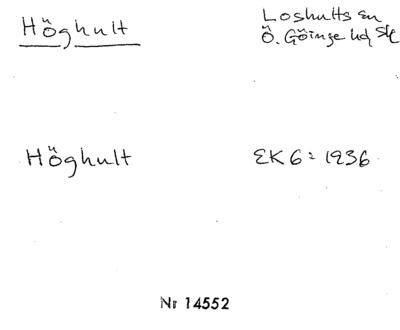 Höghult
Loshults sn
Ö. Göinge hd Sk
Höghult
EK6: 1936
Nr 14552